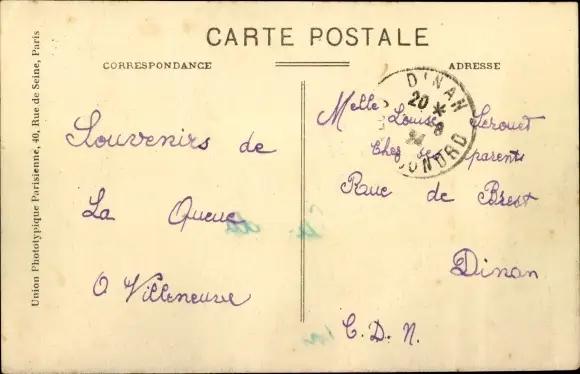 CARTE POSTALE
CORRESPONDANCE
ADRESSE
Union Phototypique Parisienne, 40, Rue de Seine, Paris
Souvenirs de
La Queue
O Villeneuve
DINAN
20 * 8
24
DU NORD
Melle Louise Serouet
Chez ses parents
Rue de Brest
Dinan
C. D. N.